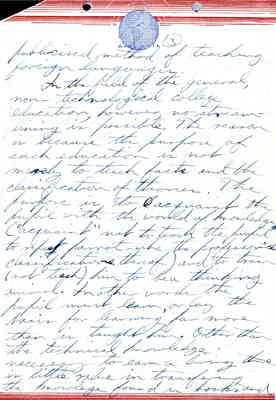 (3)
publicised method of teaching
foreign languages.
In the field of the general,
non-technological college
education, however, no
is possible. The reason
is because the purpose of
such education is not
to teach facts and the
classification of theories. The
purpose is to acquaint the
pupil with the world of knowledge
("acquaint" not to teach the pupil
to parrot
classification thereof) and to train
(not teach) him to be a thinking
animal. In other words the
pupil must learn, or lay the
basis for learning far more
than is taught him. Other than
technical knowledge
to earn a living
is little value in
the knowledge found in books and